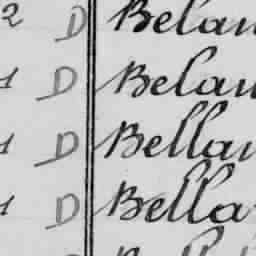 2 D Belan
1 D Belan
1 D Bellan
1 D Bella